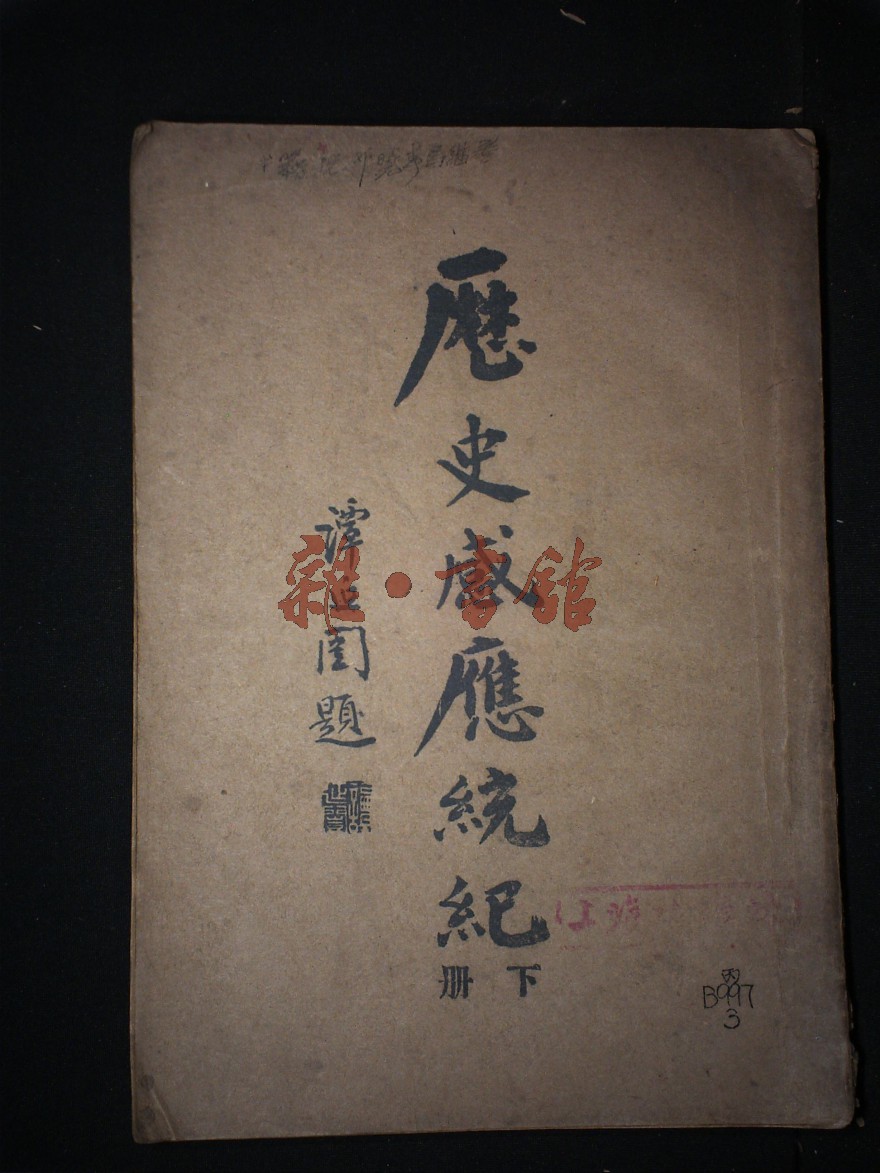 歷史感應統紀
下册
譚延闿題
雜·書館
丙
B997
3